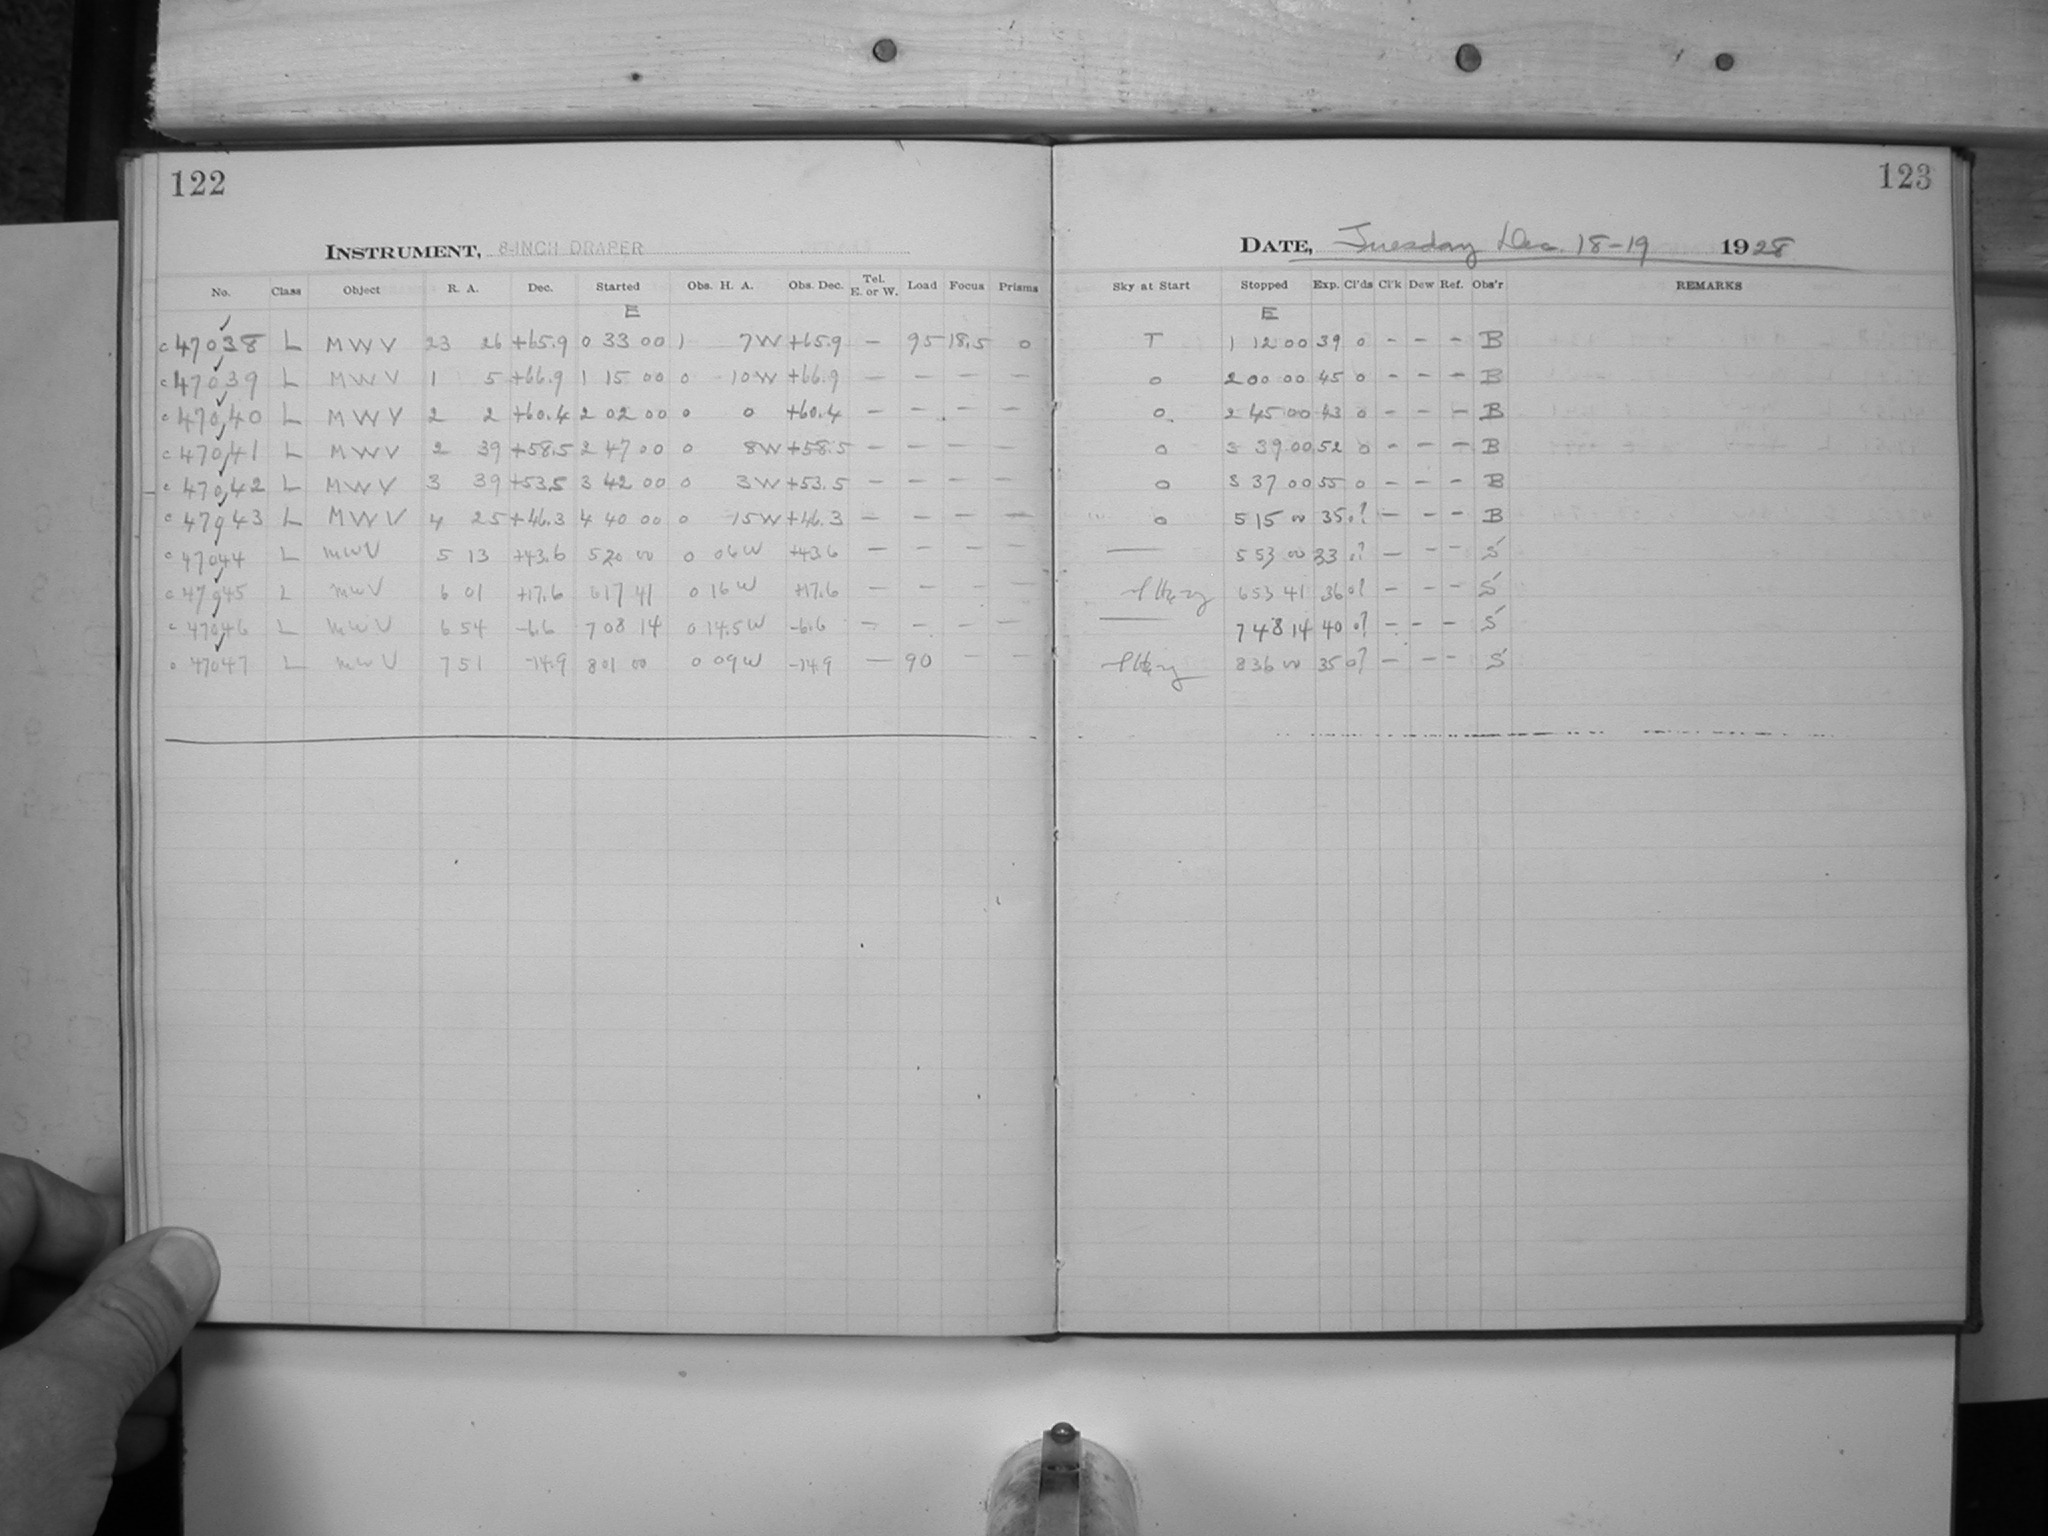 122
123
INSTRUMENT, 8-INCH DRAPER
DATE, Tuesday Dec. 18-19 1928
No. Class Object R. A. Dec. Started Obs. H. A. Obs. Dec. Tel. E. or W. Load Focus Prisms Sky at Start Stopped Exp. Cl'ds Cl'k Dew Ref. Obs'r REMARKS
E E
c 47038 L MWV 23 26 +65.9 0 33 00 1 7W +65.9 – 95 18.5 0 T 1 12 00 39 0 – – – B
c 47039 L MWV 1 5 +66.9 1 15 00 0 10W +66.9 – – – – 0 2 00 00 45 0 – – – B
c 47040 L MWV 2 2 +60.4 2 02 00 0 0 +60.4 – – – – 0 2 45 00 43 0 – – – B
c 47041 L MWV 2 39 +58.5 2 47 00 0 8W +58.5 – – – – 0 3 39 00 52 0 – – – B
c 47042 L MWV 3 39 +53.5 3 42 00 0 3W +53.5 – – – – 0 3 37 00 55 0 – – – B
c 47043 L MWV 4 25 +46.3 4 40 00 0 15W +46.3 – – – – 0 5 15 00 35 0? – – – B
c 47044 L MWV 5 13 +43.6 5 20 00 0 06W +43.6 – – – – — 5 53 00 33 0? – – – S
c 47045 L MWV 6 01 +17.6 6 17 41 0 16W +17.6 – – – – 6 53 41 36 0? – – – S
c 47046 L MWV 6 54 -6.6 7 08 14 0 14.5W -6.6 – – – – — 7 48 14 40 0? – – – S
c 47047 L MWV 7 51 -14.9 8 01 00 0 09W -14.9 – 90 – – 8 36 00 35 0? – – – S